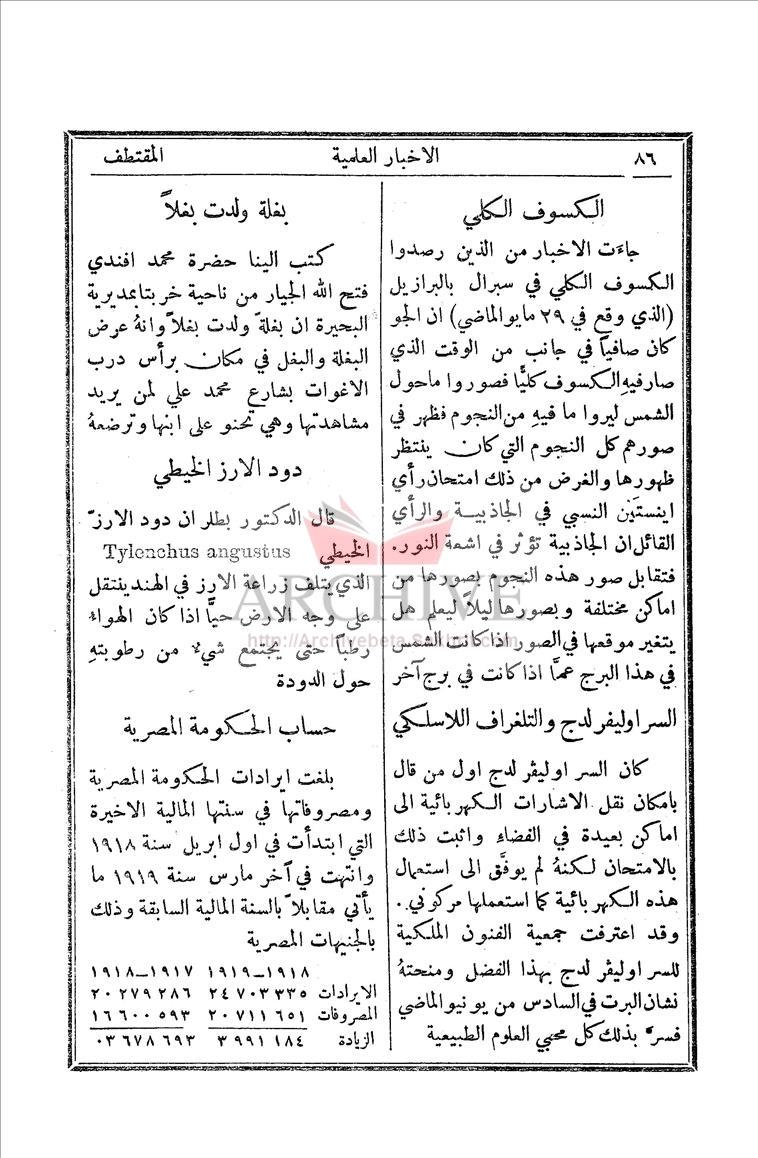 ٨٦ الاخبار العلمية المقتطف
الكسوف الكلي
جاءَت الاخبار من الذين رصدوا
الكسوف الكلي في سبرال بالبرازيل
(الذي وقع في ٢٩ مايو الماضي) ان الجو
كان صافياً في جانب من الوقت الذي
صار فيهِ الكسوف كليًّا فصوروا ما حول
الشمس ليروا ما فيهِ من النجوم فظهر في
صورهم كل النجوم التي كان ينتظر
ظهورها والغرض من ذلك امتحان رأي
اينستَيْن النسبي في الجاذبية والرأي
القائل ان الجاذبية تؤثر في اشعة النور.
فتقابل صور هذه النجوم بصورها من
اماكن مختلفة وبصورها ليلاً ليعلم هل
يتغير موقعها في الصور اذا كانت الشمس
في هذا البرج عمَّا اذا كانت في برج آخر
السر اوليفر لدج والتلغراف اللاسلكي
كان السر اوليڤر لدج اول من قال
بامكان نقل الاشارات الكهربائية الى
اماكن بعيدة في الفضاء واثبت ذلك
بالامتحان لكنهُ لم يوفَّق الى استعمال
هذه الكهربائية كما استعملها مركوني.
وقد اعترفت جمعية الفنون الملكية
للسر اوليڤر لدج بهذا الفضل ومنحتهُ
نشان البرت في السادس من يونيو الماضي
فسرَّ بذلك كل محبي العلوم الطبيعية
بغلة ولدت بغلاً
كتب الينا حضرة محمد افندي
فتح الله الجيار من ناحية خربتا بمديرية
البحيرة ان بغلةً ولدت بغلاً وانهُ عرض
البغلة والبغل في مكان برأس درب
الاغوات بشارع محمد علي لمن يريد
مشاهدتها وهي تحنو على ابنها وترضعهُ
دود الارز الخيطي
قال الدكتور بطلر ان دود الارزّ
الخيطي Tylenchus angustus
الذي يتلف زراعة الارز في الهند ينتقل
على وجه الارض حيًّا اذا كان الهواء
رطباً حتى يجتمع شيءٌ من رطوبتهِ
حول الدودة
حساب الحكومة المصرية
بلغت ايرادات الحكومة المصرية
ومصروفاتها في سنتها المالية الاخيرة
التي ابتدأت في اول ابريل سنة ١٩١٨
وانتهت في آخر مارس سنة ١٩١٩ ما
يأتي مقابلاً بالسنة المالية السابقة وذلك
بالجنيهات المصرية
١٩١٨–١٩١٩ ١٩١٧–١٩١٨
الايرادات ٢٤٧٠٣٣٣٥ ٢٠٢٧٩٢٨٦
المصروفات ٢٠٧١١٦٥١ ١٦٦٠٠٥٩٣
الزيادة ٣٩٩١١٨٤ ٠٣٦٧٨٦٩٣
ARCHIVE